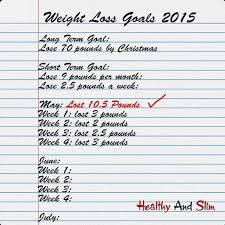 Weight Loss Goals 2015
Long Term Goal:
Lose 70 pounds by Christmas
Short Term Goal:
Lose 9 pounds per month:
Lose 2.5 pounds a week:
May: Lost 10.5 Pounds
Week 1: lost 3 pounds
Week 2: lost 3 pounds
Week 3: lost 2.5 pounds
Week 4: lost 2 pounds
June:
Week 1:
Week 2:
Week 3:
Week 4:
Healthy And Slim
July: